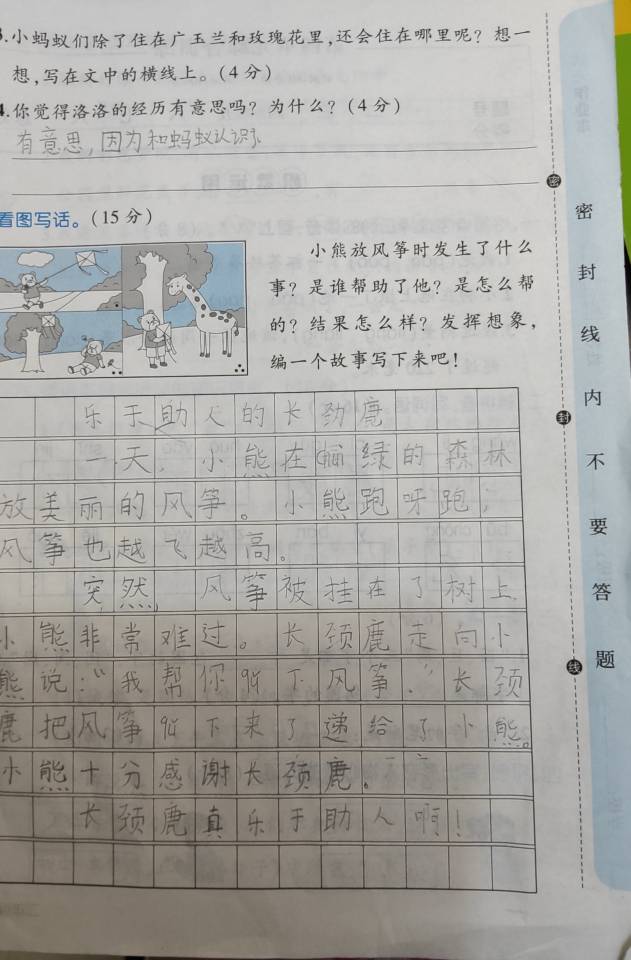 3.小蚂蚁们除了住在广玉兰和玫瑰花里,还会住在哪里呢?想一
想,写在文中的横线上。(4分)
4.你觉得洛洛的经历有意思吗?为什么?(4分)
有意思,因为和蚂蚁认识
看图写话。(15分)
小熊放风筝时发生了什么
事?是谁帮助了他?是怎么帮
的?结果怎么样?发挥想象,
编一个故事写下来吧!
乐于助人的长劲鹿
一天,小熊在绿的森林
放美丽的风筝。小熊跑呀跑,
风筝也越飞越高。
突然,风筝被挂在了树上
小熊非常难过。长颈鹿走向小
熊说:“我帮你下风筝.”长颈
鹿把风筝下来了递给了小熊。
小熊十分感谢长颈鹿。
长颈鹿真乐于助人啊!
密
封
线
密
封
线
内
不
要
答
题